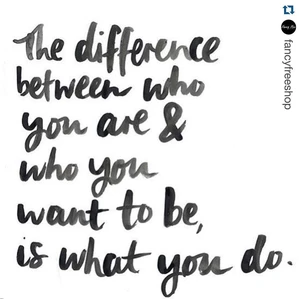 The difference
between who
you are &
who you
want to be,
is what you do.
fancyfreeshop